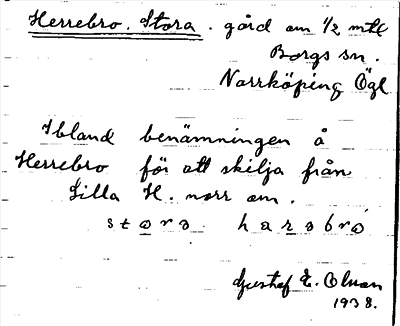 Herrebro. Stora. gård om 1/2 mtl
Borgs sn.
Norrköping Ögl
Ibland benämningen å
Herrebro för att skilja från
Lilla H. norr om.
stora harabro
Gustaf E. Olsson
1938.